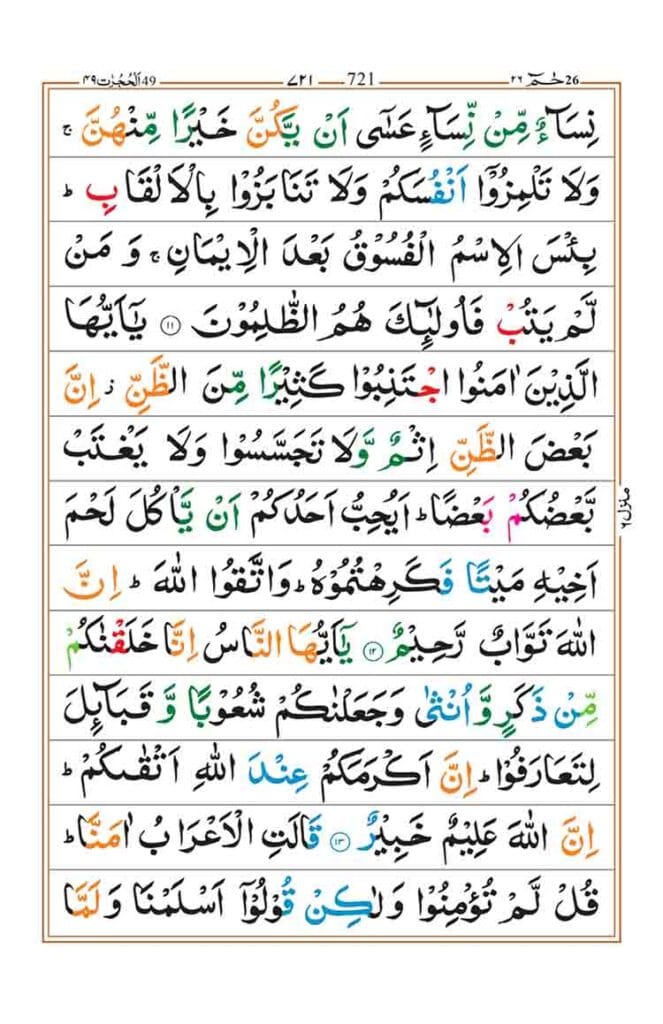 حٰمٓ 26 ٢٦ 721 ٧٢١ اَلْحُجُرٰت 49 ٤٩
نِسَآءٌ مِّنْ نِّسَآءٍ عَسٰٓى اَنْ يَّكُنَّ خَيْرًا مِّنْهُنَّ ۚ
وَلَا تَلْمِزُوْٓا اَنْفُسَكُمْ وَلَا تَنَابَزُوْا بِالْاَلْقَابِ ؕ
بِئْسَ الِاسْمُ الْفُسُوْقُ بَعْدَ الْاِيْمَانِ ۚ وَ مَنْ
لَّمْ يَتُبْ فَاُولٰٓئِكَ هُمُ الظّٰلِمُوْنَ ۝۱۱ يٰٓاَيُّهَا
الَّذِيْنَ اٰمَنُوا اجْتَنِبُوْا كَثِيْرًا مِّنَ الظَّنِّ ز اِنَّ
بَعْضَ الظَّنِّ اِثْمٌ وَّلَا تَجَسَّسُوْا وَلَا يَغْتَبْ
بَّعْضُكُمْ بَعْضًا ؕ اَيُحِبُّ اَحَدُكُمْ اَنْ يَّاْكُلَ لَحْمَ
اَخِيْهِ مَيْتًا فَكَرِهْتُمُوْهُ ؕ وَاتَّقُوا اللّٰهَ ؕ اِنَّ
اللّٰهَ تَوَّابٌ رَّحِيْمٌ ۝۱۲ يٰٓاَيُّهَا النَّاسُ اِنَّا خَلَقْنٰكُمْ
مِّنْ ذَكَرٍ وَّ اُنْثٰى وَجَعَلْنٰكُمْ شُعُوْبًا وَّ قَبَآئِلَ
لِتَعَارَفُوْا ؕ اِنَّ اَكْرَمَكُمْ عِنْدَ اللّٰهِ اَتْقٰىكُمْ ؕ
اِنَّ اللّٰهَ عَلِيْمٌ خَبِيْرٌ ۝۱۳ قَالَتِ الْاَعْرَابُ اٰمَنَّا ؕ
قُلْ لَّمْ تُؤْمِنُوْا وَلٰكِنْ قُوْلُوْٓا اَسْلَمْنَا وَلَمَّا
منزل ٦